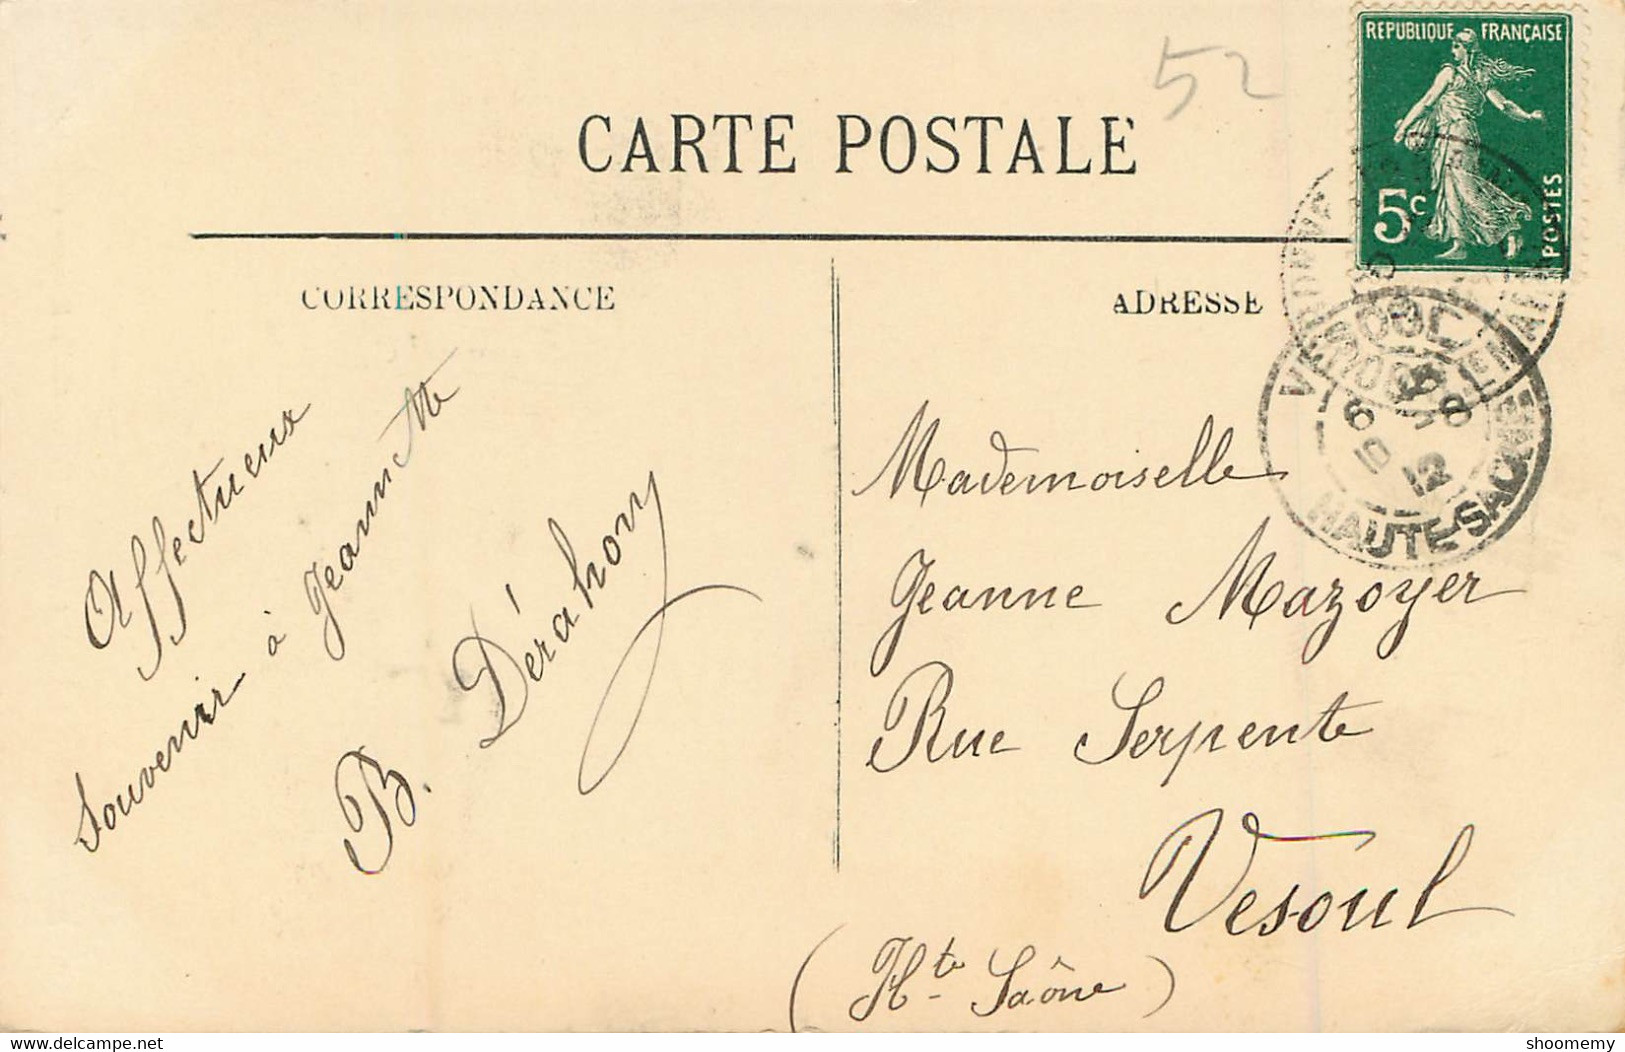 52
REPUBLIQUE FRANÇAISE
5c
POSTES
CARTE POSTALE
CORRESPONDANCE
ADRESSE
VESOUL
6 45
10 - 8
12
HAUTE-SAONE
Affectueux
souvenir à Jeannette
B. Dérahony
Mademoiselle
Jeanne Mazoyer
Rue Serpente
Vesoul
(Hte Saône)
https://www.delcampe.net
shoomemy